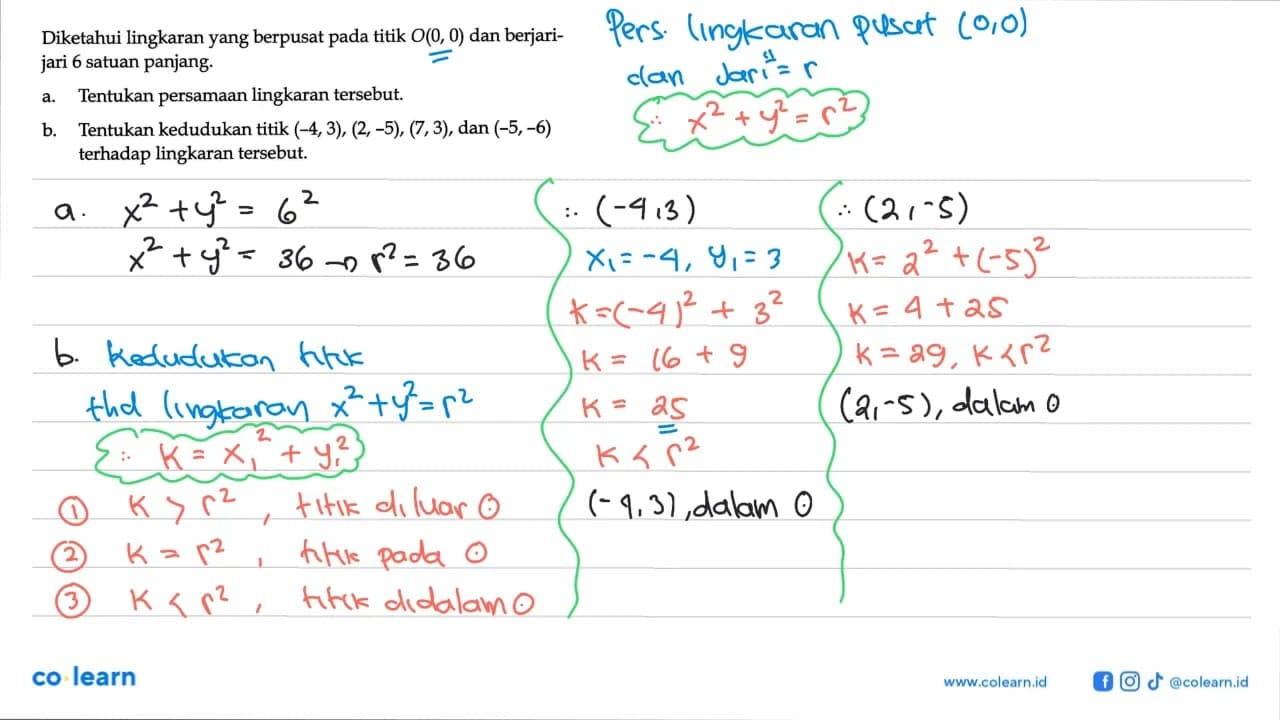 Diketahui lingkaran yang berpusat pada titik O(0, 0) dan berjari-
jari 6 satuan panjang.
a. Tentukan persamaan lingkaran tersebut.
b. Tentukan kedudukan titik (–4, 3), (2, –5), (7, 3), dan (–5, –6)
terhadap lingkaran tersebut.
Pers. lingkaran pusat (0,0)
dan Jari" = r
∴ x² + y² = r²
a. x² + y² = 6²
x² + y² = 36 → r² = 36
b. kedudukan titik
thd lingkaran x² + y² = r²
∴ K = x₁² + y₁²
① K > r², titik diluar ⊙
② K = r², titik pada ⊙
③ K < r², titik didalam ⊙
∴ (-4,3)
x₁ = -4, y₁ = 3
K = (-4)² + 3²
K = 16 + 9
K = 25
K < r²
(-4,3), dalam ⊙
∴ (2,-5)
K = 2² + (-5)²
K = 4 + 25
K = 29, K < r²
(2,-5), dalam ⊙
co learn
www.colearn.id
@colearn.id